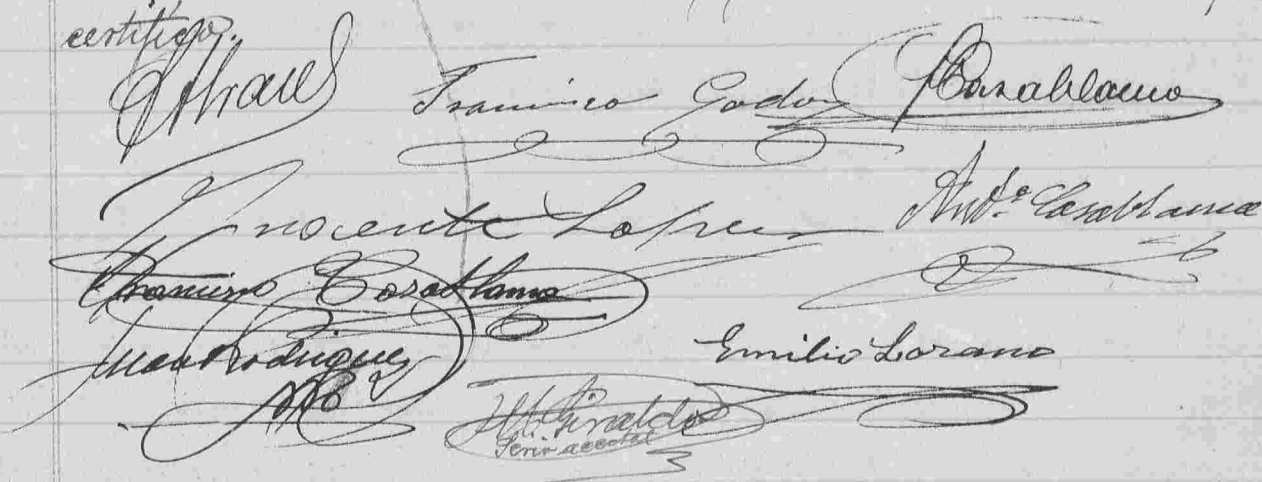 certifico.
Francisco Godoy Casablanca
Inocente Lopez And.º Casablanca
Francisco Casablanca
Juan Rodriguez Emilio Lozano
Giraldo